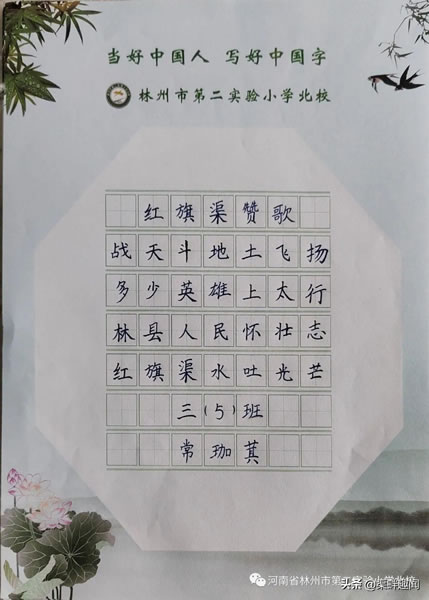 当好中国人 写好中国字
林州市第二实验小学北校
红旗渠赞歌
战天斗地土飞扬
多少英雄上太行
林县人民怀壮志
红旗渠水吐光芒
三(5)班
常珈萁
河南省林州市第二实验小学北校